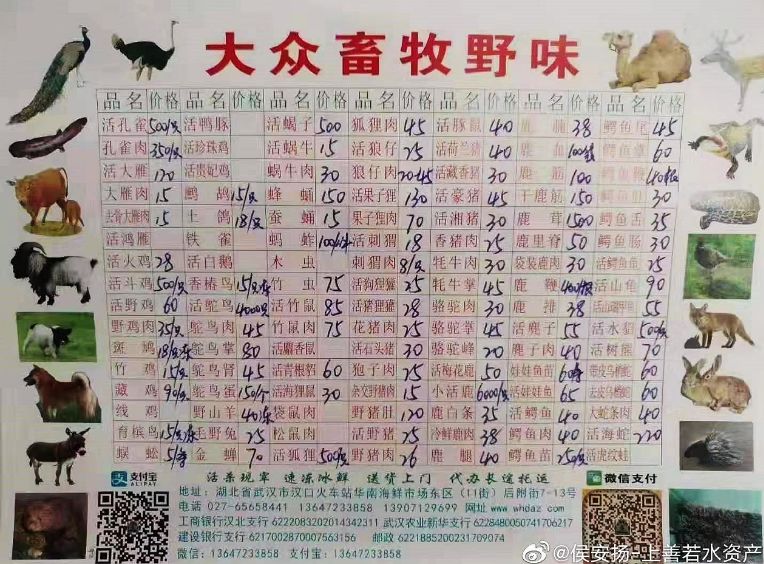 大众畜牧野味
品名 价格 品名 价格 品名 价格 品名 价格 品名 价格 品名 价格 品名 价格
活孔雀 500/只 活鸭豚 活蝎子 500 狐狸肉 45 活豚鼠 40 38 鳄鱼尾 45
孔雀肉 350/只 活珍珠鸡 活蜗牛 15 活狼仔 25 活荷兰猪 40 60
活大雁 120 活贵妃鸡 蜗牛肉 30 狼仔肉 20-45 活藏香猪 30 100
大雁肉 15 鹧鸪 15/只 蜂蛹 150 活果子狸 130 活豪猪 45 干鹿筋 150 30
去骨大雁肉 15 土鸽 18/只 蚕蛹 15 果子狸肉 70 活湘猪 30 鹿茸 1500 鳄鱼舌 35
活鸿雁 铁雀 蚂蚱 活刺猬 18 香猪肉 25 鹿里脊 50 鳄鱼肠 30
活火鸡 28 活白鹅 木虫 刺猬肉 8/只 牦牛肉 30 袋装鹿肉 30 活鳄鱼龟 25
活斗鸡 500/只 香椿鸟 竹虫 75 25 牦牛掌 45 鹿鞭 活山龟 90
活野鸡 60 活鸵鸟 4000/只 活竹鼠 85 28 骆驼肉 30 鹿排 38 55
野鸡肉 35/只 鸵鸟肉 45 竹鼠肉 75 花猪肉 25 骆驼掌 45 活麂子 55 活水貂 500/只
斑鸠 鸵鸟掌 80 活麝香鼠 活石头猪 30 骆驼峰 20 麂子肉 40 活树熊 70
竹鸡 15/只 鸵鸟肾 45 活青根貂 60 狍子肉 25 活梅花鹿 50 娃娃鱼苗 60
藏鸡 90/只 鸵鸟蛋 150/个 活海狸鼠 30 杂交野猪肉 15 小活鹿 6000/只 活娃娃鱼 65 60
线鸡 野山羊 袋鼠肉 野猪肚 120 鹿白条 35 活鳄鱼 40 大蛇条肉 40
育槟鸟 毛野兔 25 松鼠肉 活野猪 25 冷鲜鹿肉 38 鳄鱼肉 40 活海蛇 220
蜈蚣 金蝉 70 活狐狸 500/只 野猪肉 26 鹿腿 40 鳄鱼苗 250/只 活虎纹蛙
支付宝
ALIPAY
活杀现宰 速冻冰鲜 送货上门 代办长途托运
微信支付
地址:湖北省武汉市汉口火车站华南海鲜市场东区(11街)后附街7-13号
电话:027-65658441 13647233858 13907129699 网址www.whdaz.com
工商银行汉北支行 6222083202014342311 武汉农业新华支行 6228480050741706217
建设银行汉北支行 6217002870007560345 邮政 6221885200231709074
微信:13647233858 支付宝:13647233858
@侯安扬-上善若水资产